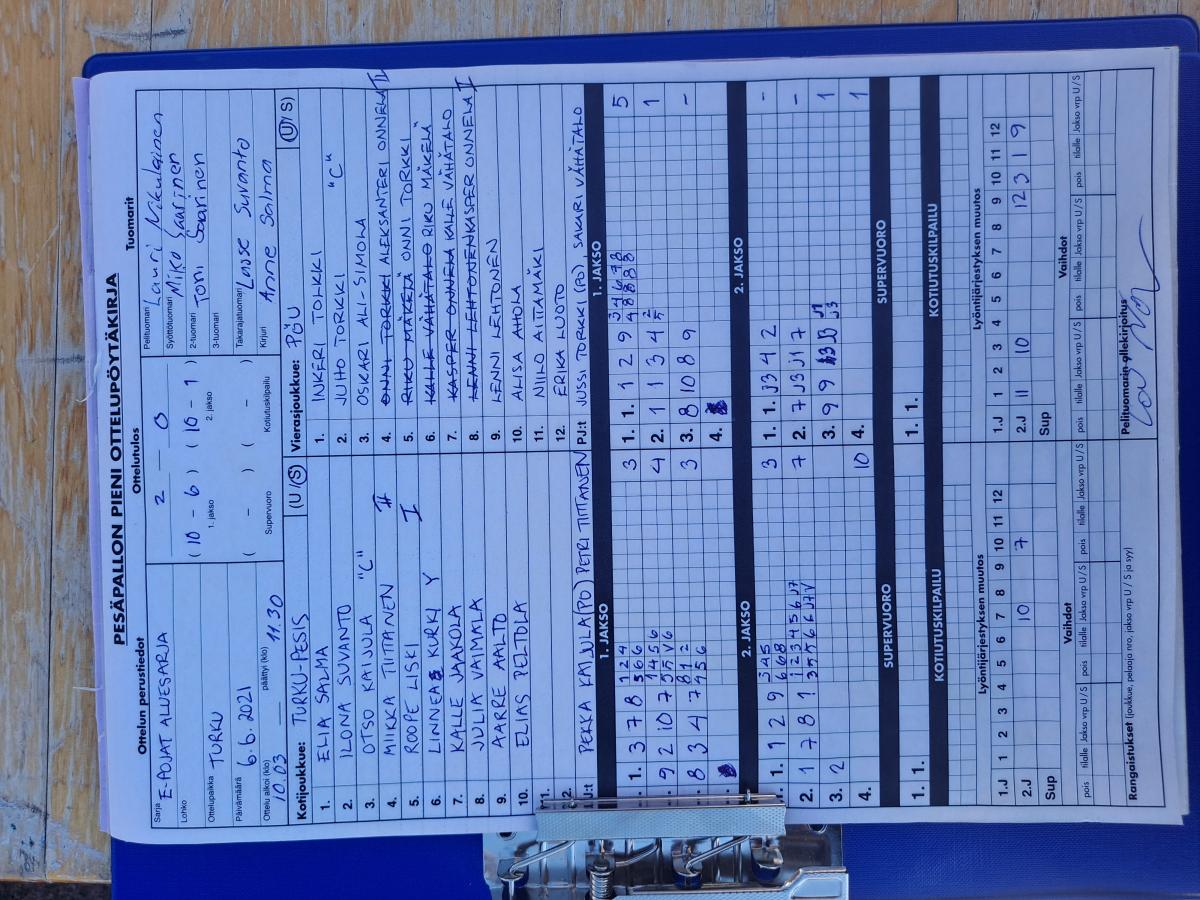 PESÄPALLON PIENI OTTELUPÖYTÄKIRJA
Ottelun perustiedot
Sarja E-POJAT ALUESARJA
Lohko
Ottelupaikka TURKU
Päivämäärä 6.6.2021
Ottelu alkoi (klo) 10.03 päättyi (klo) 11.30
Ottelutulos
2 — 0
( 10 - 6 ) ( 10 - 1 )
1. jakso 2. jakso
( - ) ( - )
Supervuoro Kotiutuskilpailu
Tuomarit
Pelituomari Lauri Nikulainen
Syöttötuomari Miko Saarinen
2-tuomari Toni Saarinen
3-tuomari
Takarajatuomari Lasse Suvanto
Kirjuri Anne Salma
Kotijoukkue: TURKU-PESIS (U/S)
1. ELIA SALMA
2. ILONA SUVANTO
3. OTSO KAIJULA "C"
4. MIIKKA TIITTANEN II
5. ROOPE LISKI I
6. LINNEA KURKI Y
7. KALLE JAAKOLA
8. JULIA VAIMALA
9. AARRE AALTO
10. ELIAS PELTOLA
11.
PEKKA KAIJULA(PJ) PETRI TIITTANEN
Vierasjoukkue: PÖU (U/S)
1. INKERI TORKKI
2. JUHO TORKKI "C"
3. OSKARI ALI-SIMOLA
4. ONNI TORKKI ALEKSANTERI ONNELA II
5. RIKU MÄKELÄ ONNI TORKKI
6. KALLE VÄHÄTALO RIKU MÄKELÄ
7. KASPER ONNELA KALLE VÄHÄTALO
8. LENNI LEHTONEN KASPER ONNELA I
9. LENNI LEHTONEN
10. ALISA AHOLA
11. NIILO AITTAMÄKI
12. ERIKA LUOTO
PJ:t JUSSI TORKKI (PJ), SAKARI VÄHÄTALO
1. JAKSO
1. 3 7 8 3
9 2 10 7 4
8 3 4 7 3
1. JAKSO
1. 1. 1 2 9 5
2. 1 1 3 4 1
3. 8 10 8 9 -
4.
2. JAKSO
1. 1 2 9 3
2. 1 7 8 1 7
3. 2
4. 10
2. JAKSO
1. 1. J3 4 2 -
2. 7 J3 J1 7 -
3. 9 9 1
4. 1
SUPERVUORO
1. 1.
KOTIUTUSKILPAILU
SUPERVUORO
1. 1.
KOTIUTUSKILPAILU
Lyöntijärjestyksen muutos
1 2 3 4 5 6 7 8 9 10 11 12
1.J
2.J 10 7
Sup
Vaihdot
pois tilalle Jakso vrp U/S pois tilalle Jakso vrp U/S pois tilalle Jakso vrp U/S
Lyöntijärjestyksen muutos
1 2 3 4 5 6 7 8 9 10 11 12
1.J
2.J 11 10 12 3 1 9
Sup
Vaihdot
pois tilalle Jakso vrp U/S pois tilalle Jakso vrp U/S pois tilalle Jakso vrp U/S
Rangaistukset (joukkue, pelaaja nro, jakso vrp U / S ja syy)
Pelituomarin allekirjoitus